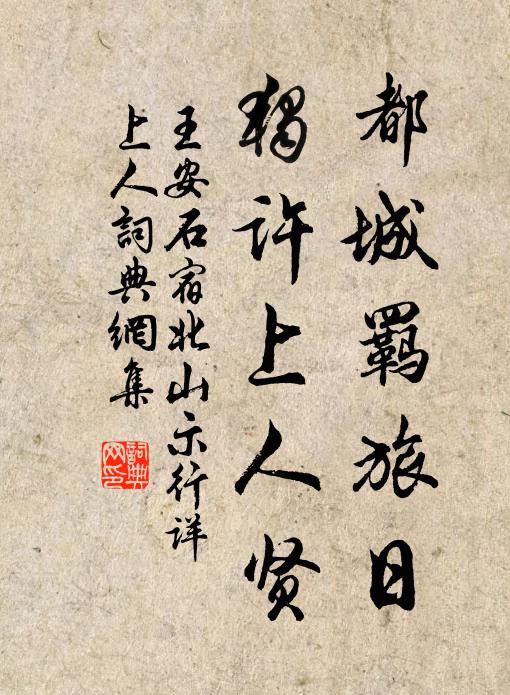 都城羈旅日
獨許上人贤
王安石宿北山示行详
上人詞典網集
詞典網印